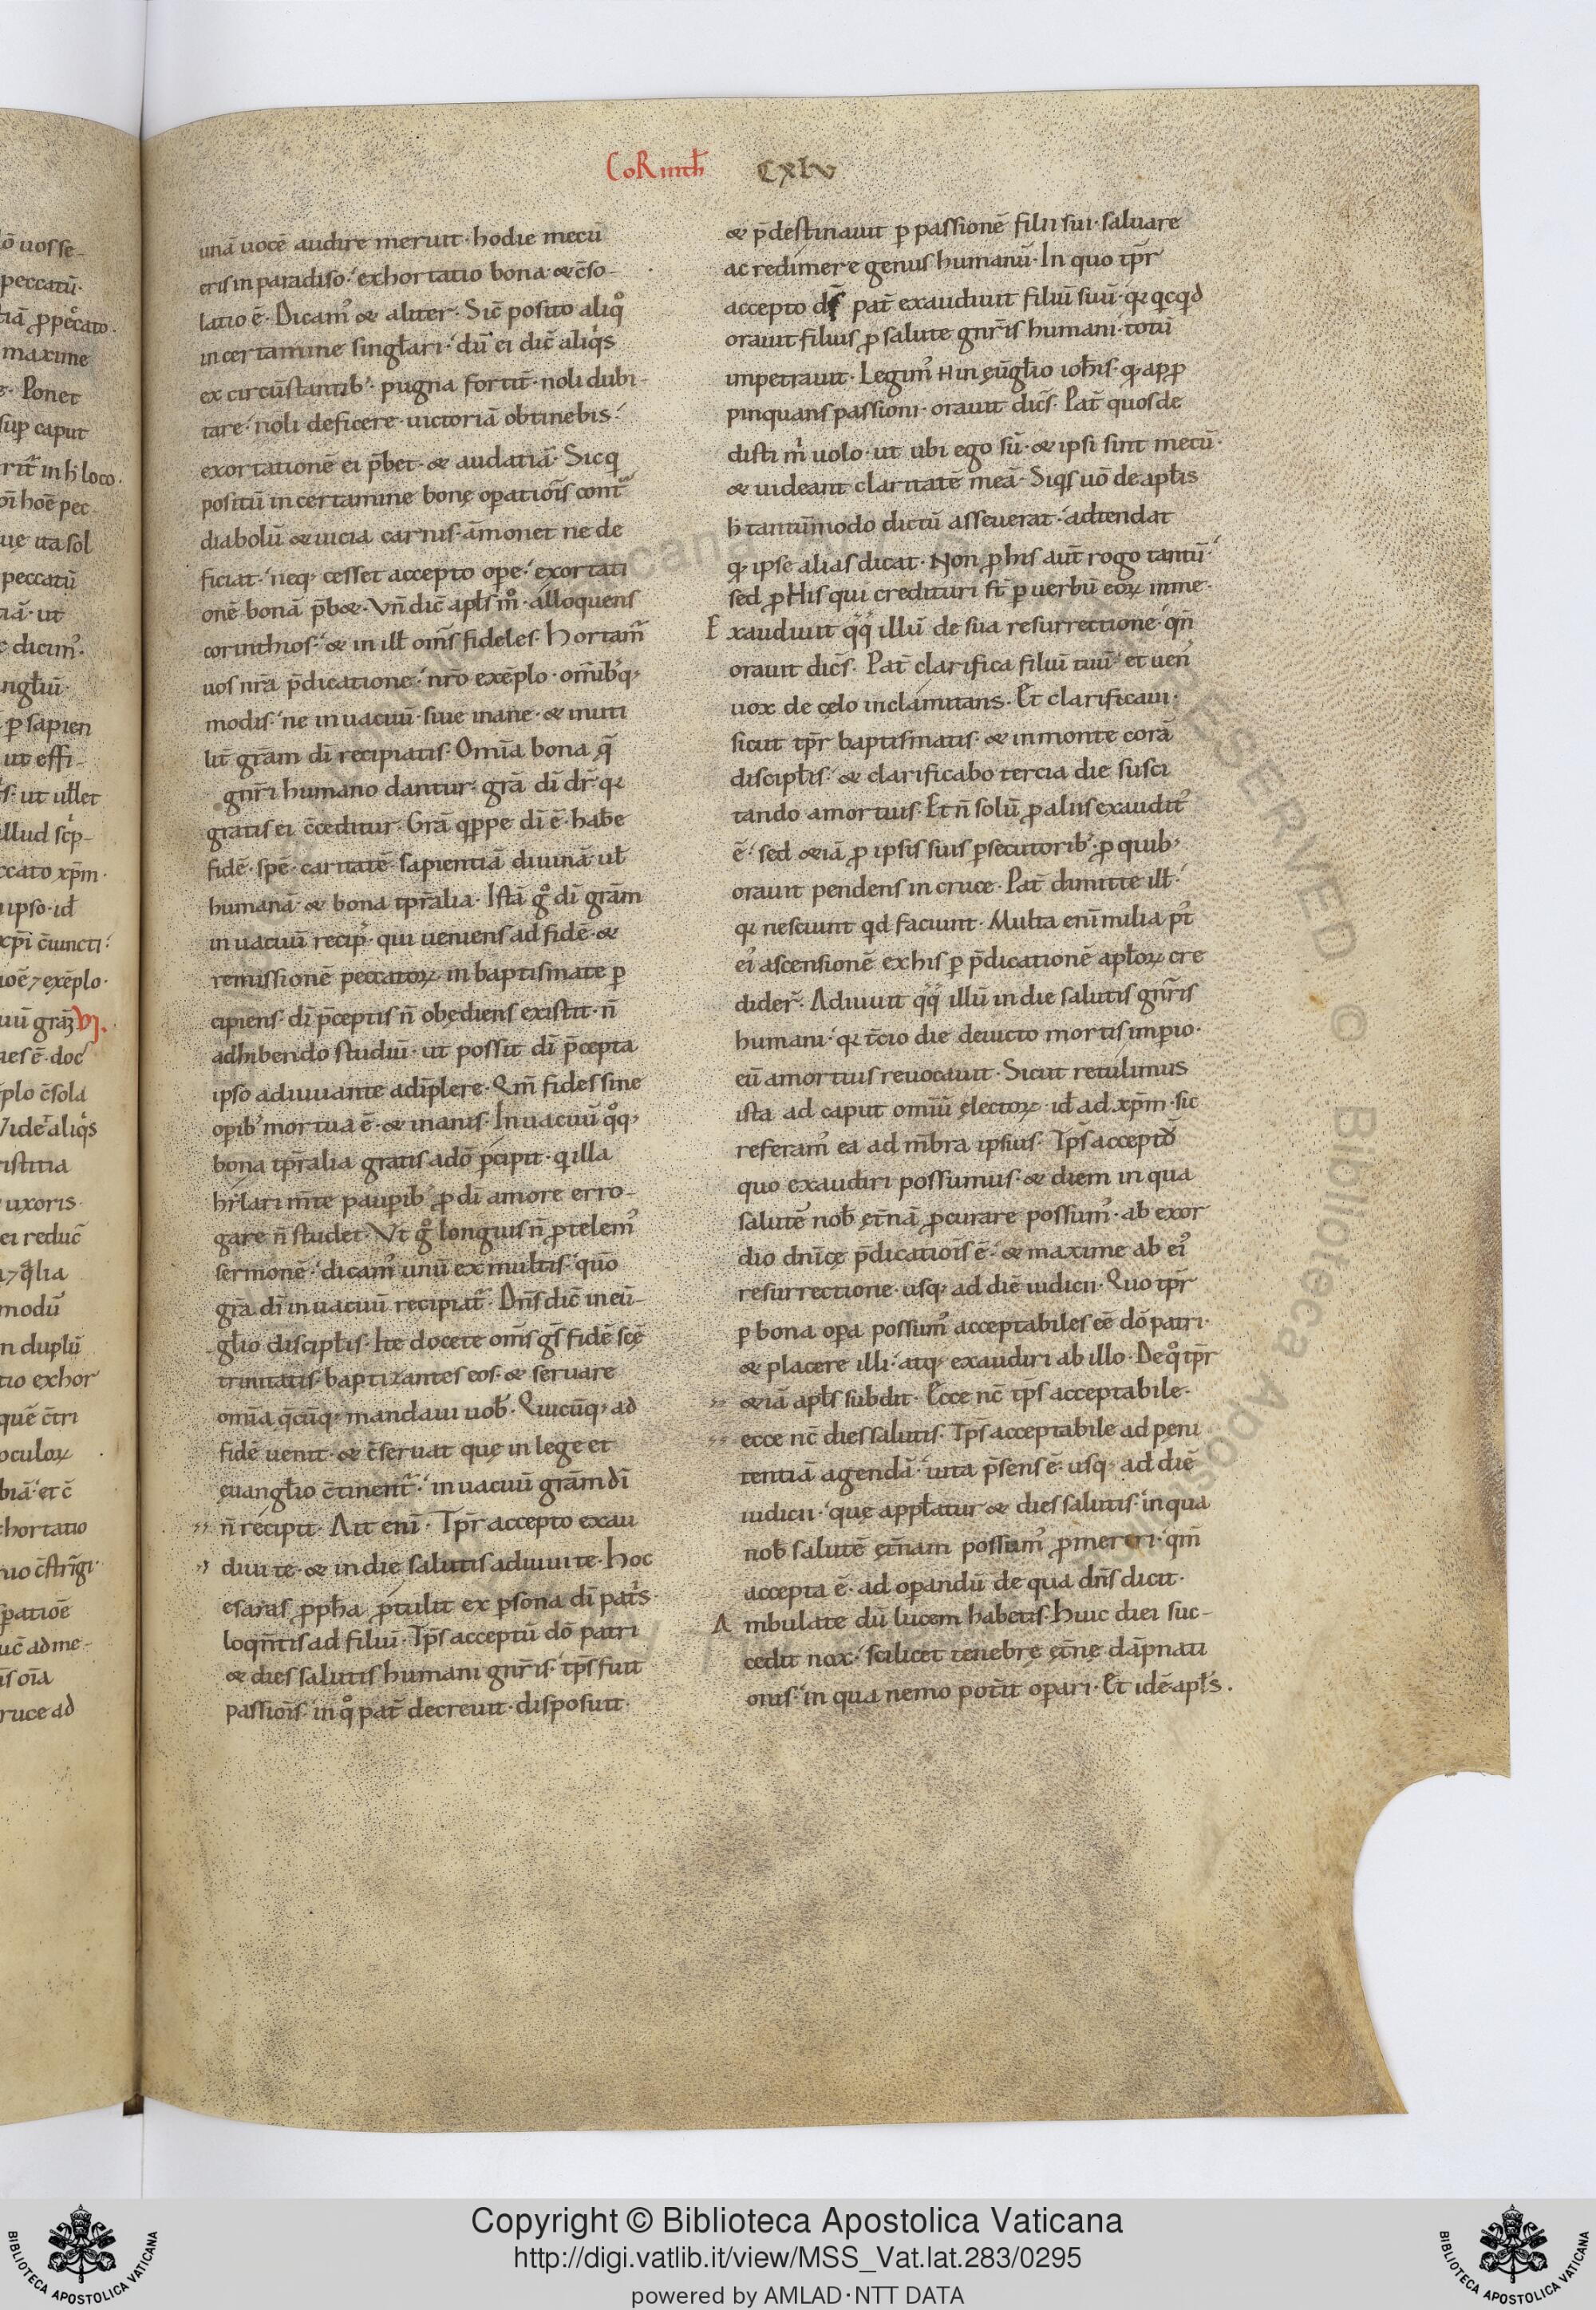 CoRinth̄ CXLV
unā uocē audire meruit· hodie mecū
eris in paradiso· exhortatio bona & c̄so-
latio ē· Dicam᾽ & aliter· Sic̄ posito aliqͦ
in certamine singłari· dū ei dic̄ aliqͥs
ex circūstantib᾽· pugna fortit̄· noli dubi-
tare· noli deficere· uictoriā obtinebis·
exortationē ei p̄bet· & audatiā· Sicq
positū in certamine bonę oꝑatiōis cont̄
diabolū & uicia carnis· āmonet ne de
ficiat· neq; cesset accepto oꝑe· exortati
onē bonā p̄b&· Vn̄ dic̄ apłs m̊· alloquens
corinthios· & in ill̄ om̄s fideles· Hortam̄
uos nr̄a p̄dicatione· nr̄o exēplo· om̄ib᾽q;
modis· ne in uacuū· siue inane· & inuti
lit̄ gr̄am dī recipiatis· Omīa bona q̄
gnr̄i humano dantur· grā dī dr̄· qꝛ
gratis ei c̄ceditur· Grā qͥppe dī ē· habe
fidē· spē· caritatē· sapientiā diuinā uł
humanā· & bona tpr̄alia· Istā gͦ dī grām
in uacuū recip̄· qui ueniens ad fidē· &
remissionē peccatoꝝ in baptismate ꝑ
cipiens· dī p̄ceptis n̄ obędiens existit· n̄
adhibendo studiū· ut possit dī p̄cepta
ipso adiuuante adīplere· Qm̄ fides sine
opib᾽ mortua ē· & inanis· In uacuū qͦq;
bona tpr̄alia gratis a dō ꝑcipit· q illa
hyłari m̄te pauꝑib᾽ ꝓ dī amore erro-
gare n̄ studet· Vt gͦ longius n̄ ꝓtelem᾽
sermonē· dicam᾽ unū ex multis· quō
grā dī in uacuū recipiat̄· Dn̄s dic̄ in eū-
głio discipłis· Ite docete om̄s gs̄ fidē scę̄
trinitatis· baptizantes eos· & seruare
omīa q̄cūq; mandaui uob̄· Quicūq; ad
fidē uenit· & c̄seruat quę in lege et
euangłio c̄tinent̄· in uacuū grām dī
n̄ recipit· Ait enī· Tpr̄ accepto exau
diui te· & in die salutis adiuui te· Hoc
esaias ꝓph̄a ꝓtulit ex ꝑsona dī patͥs·
loqn̄tis ad filiū· Tps̄ acceptū dō patri
& dies salutis humani gnr̄is· tps̄ fuit
passiōis· in qͦ pat̄ decreuit· disposuit·
& p̄destinauit ꝑ passionē filii sui· saluare
ac redimere genus humanū· In quo tpr̄
accepto ds̄ pat̄ exaudiuit filiū suū· qꝛ qͥcqͥd
orauit filius ꝓ salute gnr̄is humani· totū
impetrauit· Legim᾽ in eūgłio ioh̄is· qꝛ apꝓ
pinquans passioni· orauit dic̄s· Pat̄ quos de
disti mͥ uolo· ut ubi ego sū· & ipsi sint mecū·
& uideant claritatē meā· Siqͥs uō de apłis
h̄ tantūmodo dictū asseuerat· adtendat
qꝛ ipse alias dicat· Non ꝓ his aut̄ rogo tantū·
sed ꝓ His qui credituri st̄ ꝑ uerbū eoꝝ in me·
Exaudiuit qͦqͦ illū de sua resurrectione· qn̄
orauit dic̄s· Pat̄ clarifica filiū tuū· et uen᾽
uox de cęlo inclamitans· Et clarificaui·
sicut tpr̄ baptismatis· & in monte corā
discipłis· & clarificabo tercia die susci
tando a mortuis· Et n̄ solū ꝓ aliis exaudit᾽
ē· sed &iā ꝓ ipsis suis ꝑsecutorib᾽· ꝓ quib;
orauit pendens in cruce· Pat̄ dimitte ill̄·
qꝛ nesciunt qͥd faciunt· Multa enī milia p᾽t
ei᾽ ascensionē ex his ꝑ p̄dicationē apłoꝝ cre
dider̄· Adiuuit qͦqͦ illū in die salutis gnr̄is
humani· qꝛ t̄cio die deuicto mortis imꝑio·
eū a mortuis reuocauit· Sicut retulimus
ista ad caput omiū electoꝝ· id̄ ad xp̄m· sic
referam᾽ ea ad m̄bra ipsius· Tps̄ acceptū
quo exaudiri possumus· & diem in qua
salutē nob̄ ęt̄nā ꝓcurare possum᾽· ab exor
dio dn̄icę p̄dicatiōis ē· & maxime ab ei᾽
resurrectione· usq; ad diē iudicii· Quo tpr̄
ꝑ bona oꝑa possum᾽ acceptabiles eē dō patri·
& placere illi· atq; exaudiri ab illo· De qͦ tpr̄
&iā apłs subdit· Ecce nc̄ tps̄ acceptabile·
ecce nc̄ dies salutis· Tps̄ acceptabile ad peni
tentiā agendā· uita p̄sens ē· usq; ad diē
iudicii· quę appłatur & dies salutis· in qua
nob̄ salutē ęt̄nam possum᾽ ꝓmereri· qm̄
accepta ē· ad oꝑandū de qua dn̄s dicit·
Ambulate dū lucem habetis· Huic diei suc-
cedit nox· scilicet tenebrę ęt̄nę dāpnati
onis· in qua nemo pot̄it oꝑari· Et idē apłs.
Copyright © Biblioteca Apostolica Vaticana
http://digi.vatlib.it/view/MSS_Vat.lat.283/0295
powered by AMLAD·NTT DATA